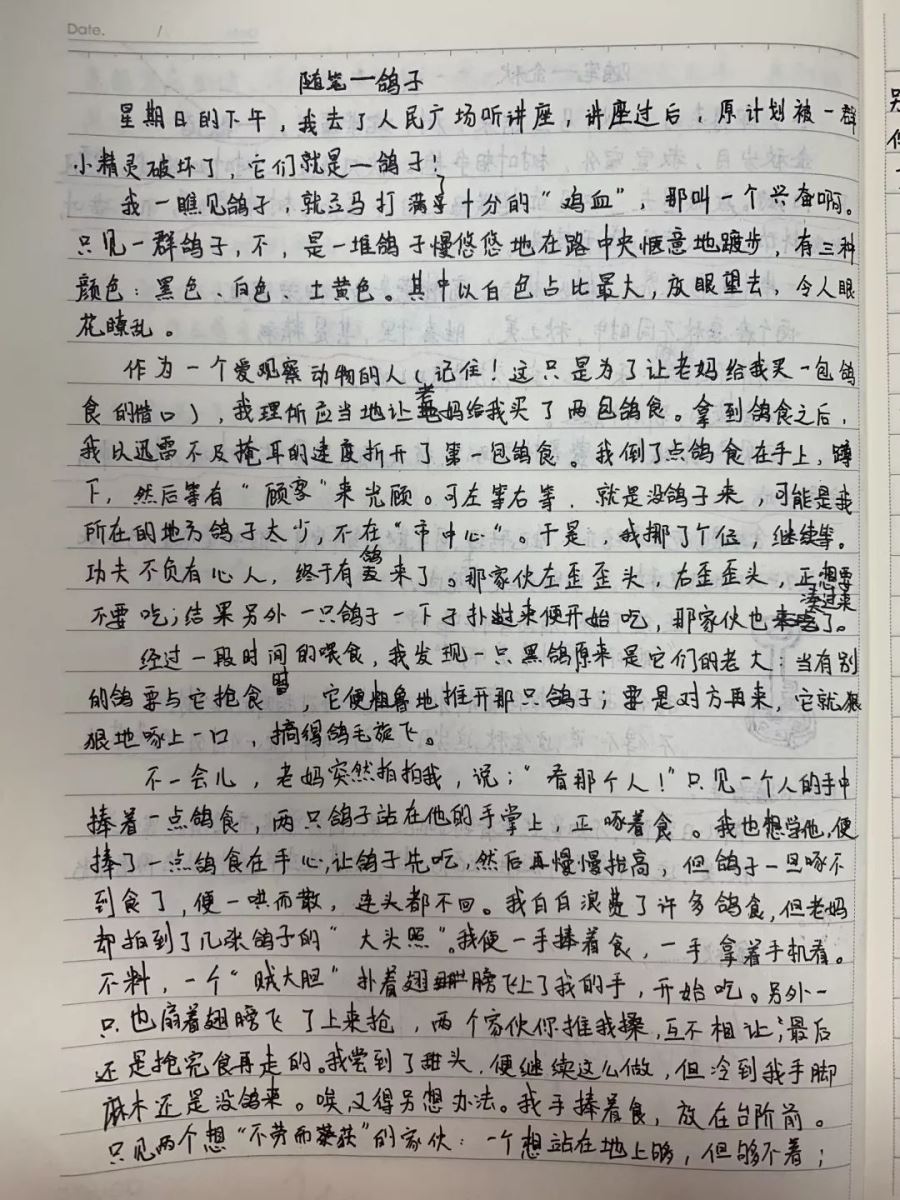 Date. /
随笔一鸽子
星期日的下午，我去了人民广场听讲座，讲座过后，原计划被一群
小精灵破坏了，它们就是一鸽子！
我一瞧见鸽子，就立马打满了十分的“鸡血”，那叫一个兴奋啊。
只见一群鸽子，不，是一堆鸽子慢悠悠地在路中央惬意地踱步，有三种
颜色：黑色、白色、土黄色。其中以白色占比最大，放眼望去，令人眼
花瞭乱。
作为一个爱观察动物的人（记住！这只是为了让老妈给我买一包鸽
食的借口），我理所应当地让老妈给我买了两包鸽食。拿到鸽食之后，
我以迅雷不及掩耳的速度折开了第一包鸽食。我倒了点鸽食在手上，蹲
下，然后等有“顾客”来光顾。可左等右等，就是没鸽子来，可能是我
所在的地方鸽子太少，不在“市中心”。于是，我挪了个位，继续等。
功夫不负有心人，终于有鸽来了。那家伙左歪歪头，右歪歪头，正想要
不要吃；结果另外一只鸽子一下子扑过来便开始吃，那家伙也凑过来了。
经过一段时间的喂食，我发现一只黑鸽原来是它们的老大：当有别
的鸽要与它抢食时，它便粗鲁地推开那只鸽子；要是对方再来，它就狠
狠地啄上一口，搞得鸽毛旋飞。
不一会儿，老妈突然拍拍我，说：“看那个人！”只见一个人的手中
捧着一点鸽食，两只鸽子站在他的手掌上，正啄着食。我也想学他，便
捧了一点鸽食在手心，让鸽子先吃，然后再慢慢抬高，但鸽子一旦啄不
到食了，便一哄而散，连头都不回。我白白浪费了许多鸽食，但老妈
却拍到了几张鸽子的“大头照”。我便一手捧着食，一手拿着手机看。
不料，一个“贼大胆”扑着翅膀飞上了我的手，开始吃。另外一
只也扇着翅膀飞了上来抢，两个家伙你推我搡，互不相让，最后
还是抢完食再走的。我尝到了甜头，便继续这么做，但冷到我手脚
麻木还是没鸽来。唉，又得另想办法。我手捧着食，放在台阶前。
只见两个想“不劳而获”的家伙：一个想站在地上够，但够不着；